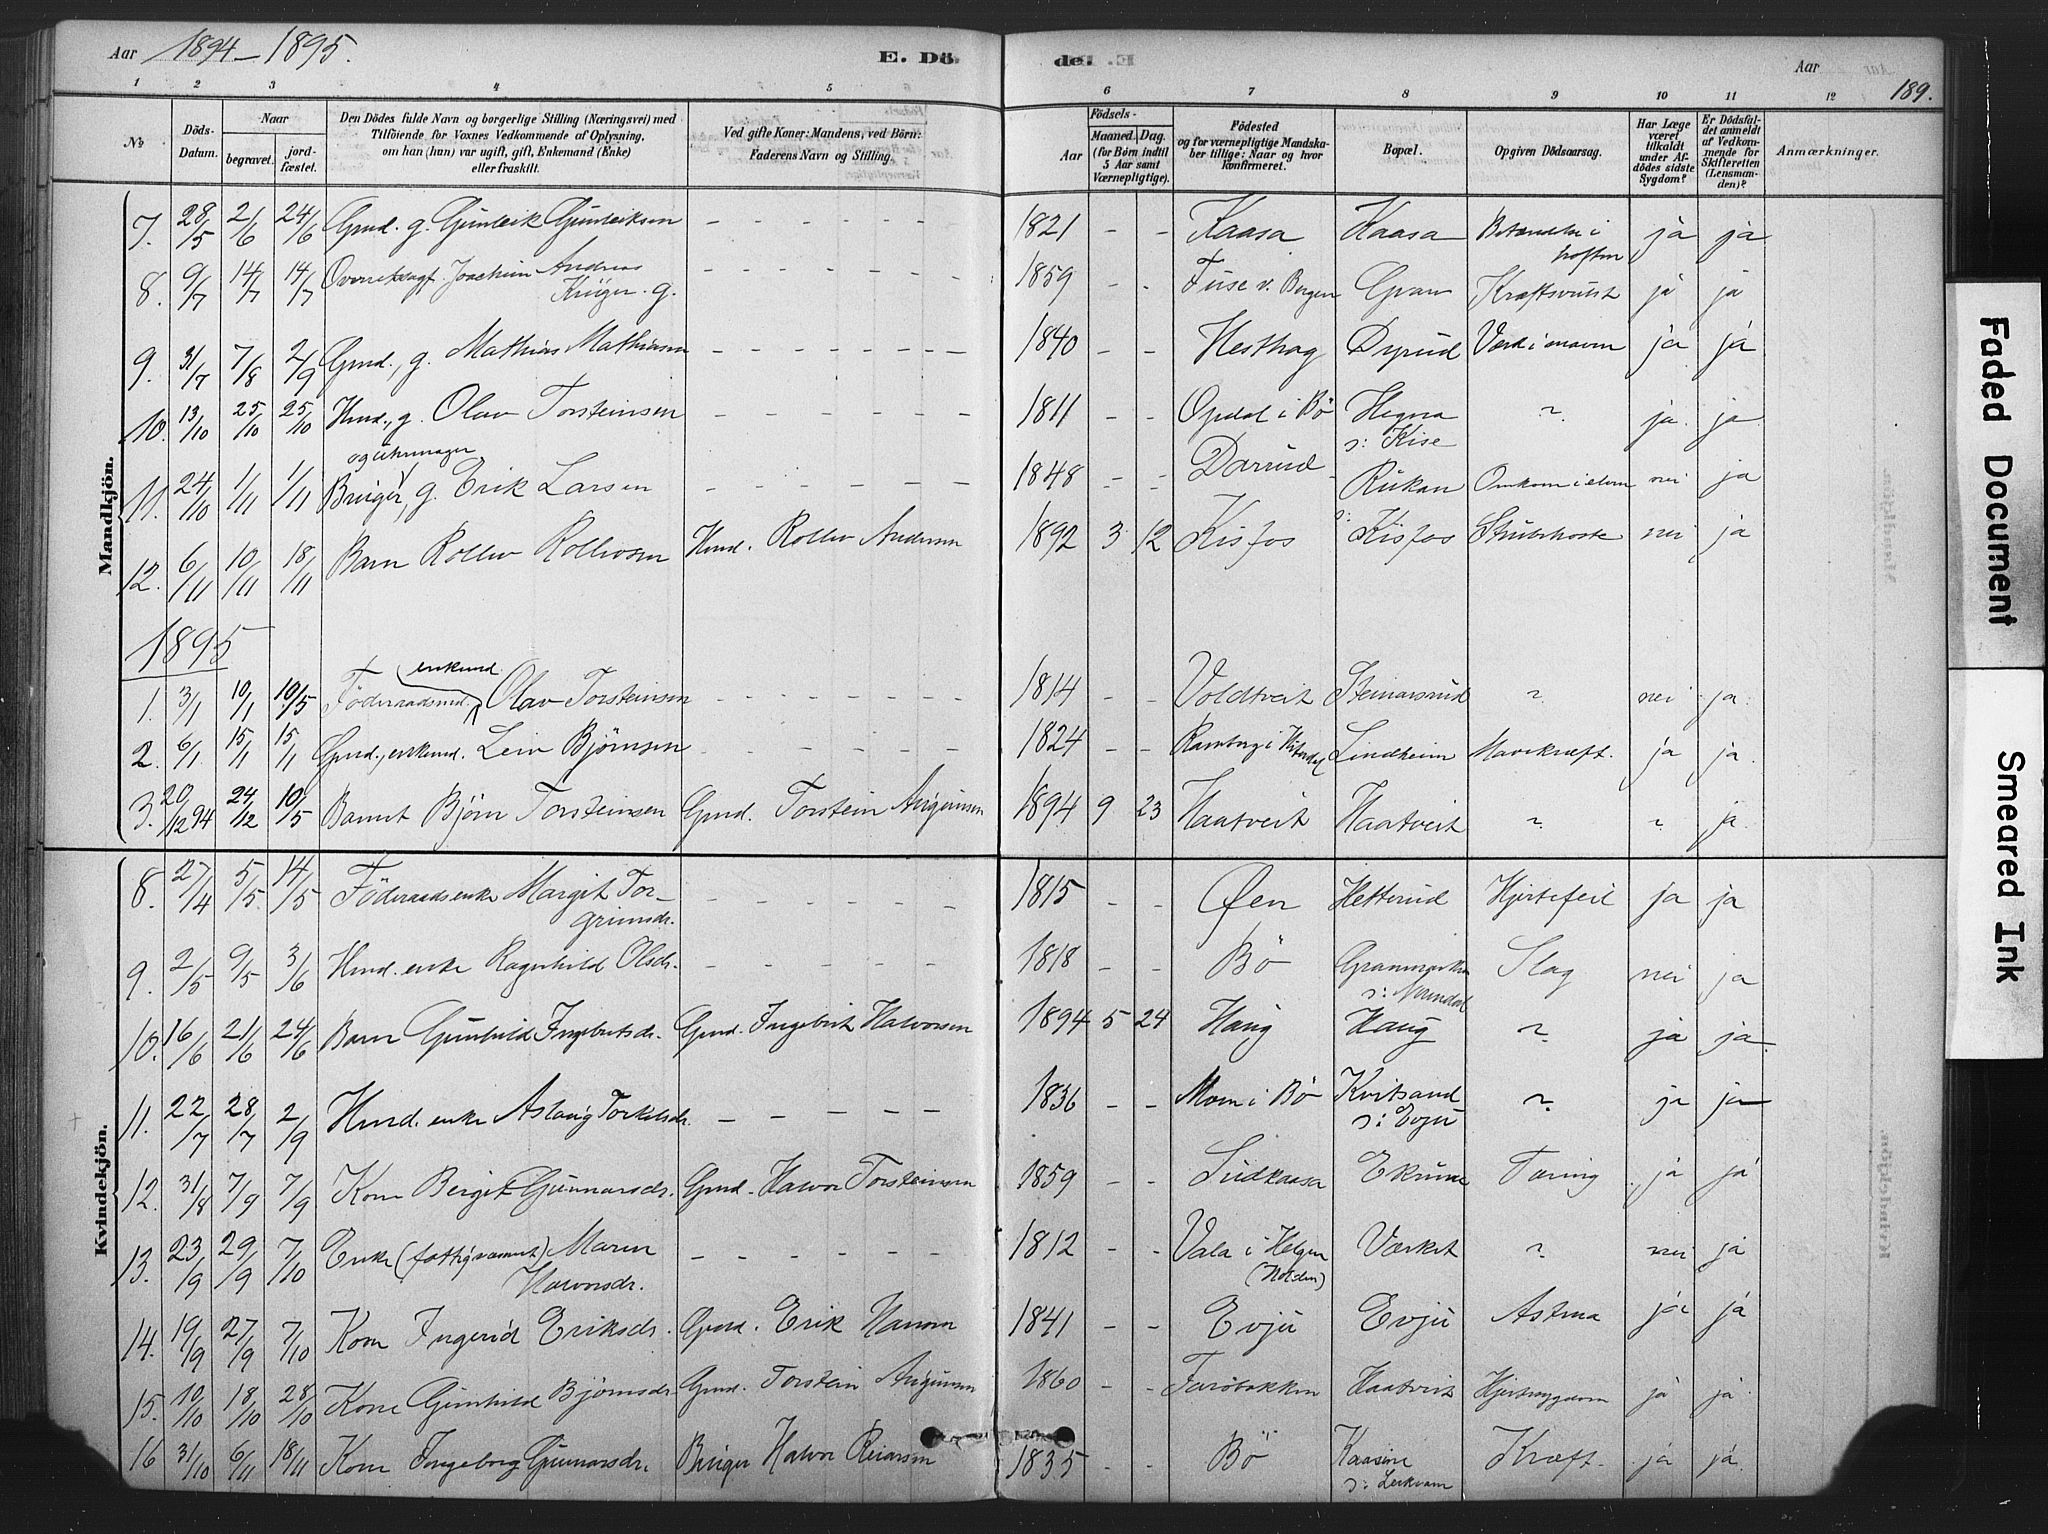 Aar 1894-1895.
E. Dö
de.
Aar
189.
1 2 3 4 5 6 7 8 9 10 11 12
No.
Döds-Datum.
Naar
begravet.
jord-fæstet.
Den Dödes fulde Navn og borgerlige Stilling (Næringsvei) med
Tilföiende for Voxnes Vedkommende af Oplysning,
om han (hun) var ugift, gift, Enkemand (Enke)
eller fraskilt.
Ved gifte Koner: Mandens, ved Börn:
Faderens Navn og Stilling.
Födsels-
Aar
Maaned. Dag.
(for Börn indtil
5 Aar samt
Værnepligtige).
Födested
og for værnepligtige Mandska-
ber tillige: Naar og hvor
konfirmeret.
Bopæl.
Opgiven Dödsaarsag.
Har Læge
været
tilkaldt
under Af-
dödes sidste
Sygdom?
Er Dödsfal-
det anmeldt
af Vedkom-
mende for
Skifteretten
(Lensman-
den)?
Anmærkninger.
Mandkjön.
7. 28/5 2/6 24/6 Gmd. g. Gunleik Gunleiksen - 1821 - - Kaasa Kaasa Betændelse i hoften ja ja
8. 9/7 14/7 14/7 Overretssagf. Joachim Andreas Krüger. g. - 1859 - - Fuse v. Bergen Gvam Kræftsvulst ja ja
9. 31/7 7/8 2/9 Gmd., g. Mathias Mathiasen - 1840 - - Hesthag Dyrud Værk i maven ja ja
10. 13/10 25/10 25/10 Hmd., g. Olav Torsteinsen - 1811 - - Opdal i Bö Hegna s: Kise ~ ja ja
11. 24/10 1/11 1/11 Bruger og uhrmager, g. Erik Larsen - 1848 - - Darrud Rukan Omkom i elven nei ja
12. 6/11 10/11 18/11 Barn Rollev Rollevsen Hmd. Rollev Andersen 1892 3 12 Kisfos s: Kisfos Strubehoste nei ja
1895
1. 3/1 10/1 10/5 Föderaadsmd. enkemd. Olav Torsteinsen - 1814 - - Voldtveit Steinarsrud ~ nei ja
2. 6/1 15/1 15/1 Gmd., enkemd. Leiv Björnsen - 1824 - - Ramberg i Hiterdal Lindheim Mavekræft. ja ja
3. 20/12 94 24/12 10/5 Barnet Björn Torsteinsen Gmd. Torstein Augunsen 1894 9 23 Haatveit Haatveit ~ ~ ja
Kvindekjön.
8. 27/4 5/5 14/5 Föderaadsenke Margit Torgrimsdr. - 1815 - - Øen Hetterud Hjertefeil ja ja
9. 2/5 9/5 3/6 Hmd. enke Ragnhild Olsdr. - 1818 - - Bö s: Slag nei ja
10. 16/6 21/6 24/6 Barn Gunhild Ingebretsdr. Gmd. Ingebrit Halvorsen 1894 5 24 Haug Haug ~ ja ja
11. 22/7 28/7 2/9 Hmd. enke Aslaug Torkilsdr. - 1836 - - Moen i Bö Kvitsand s: Evju ~ ja ja
12. 31/8 7/9 7/9 Kone Bergit Gunnarsdr. Gmd. Halvor Torsteinsen 1859 - - Sudkaasa Ekrene Tæring ja ja
13. 23/9 29/9 7/10 Enke (fattiglemmet) Maren Halvorsdr. - 1812 - - Vala i Helgen (Holden) Værket ~ nei ja
14. 19/9 27/9 7/10 Kone Ingerid Eriksdr. Gmd. Erik Hansen 1841 - - Evju Evju Astma ja ja
15. 10/10 18/10 28/10 Kone Gunhild Björnsdr. Gmd. Torstein Augunsen 1860 - - Farobakken Haatveit Hjertesygdom ja ja
16 31/10 6/11 18/11 Kone Ingeborg Gunnarsdr. Bruger Halvor Reiarsen 1835 - - Bö Kaasene s: Leikvam Kræft. ja ja
Faded Document
Smeared Ink